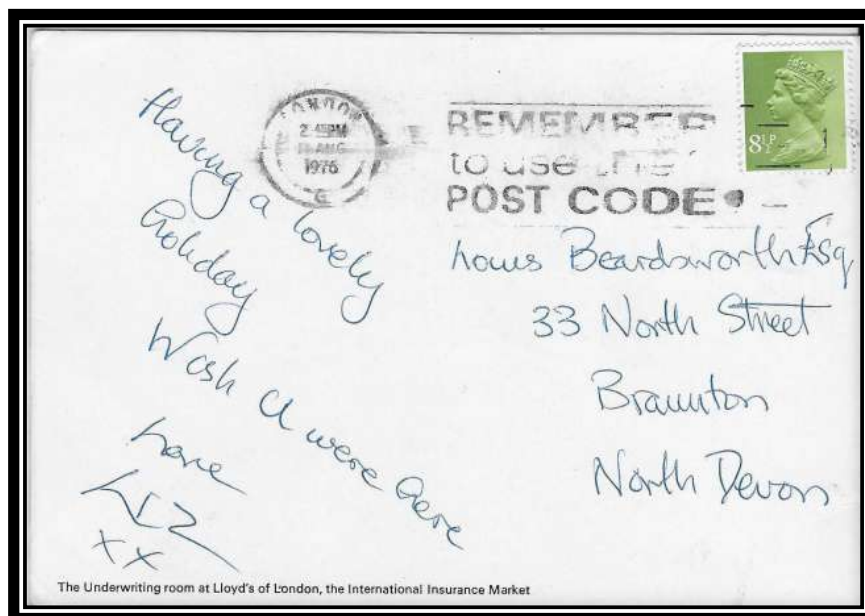 Having a lovely
holiday
Wish U were here
Love
LIZ
XX
LONDON
2.45PM
AUG
1976
REMEMBER
to use the
POST CODE
8½P
Louis Beardsworth Esq
33 North Street
Braunton
North Devon
The Underwriting room at Lloyd's of London, the International Insurance Market